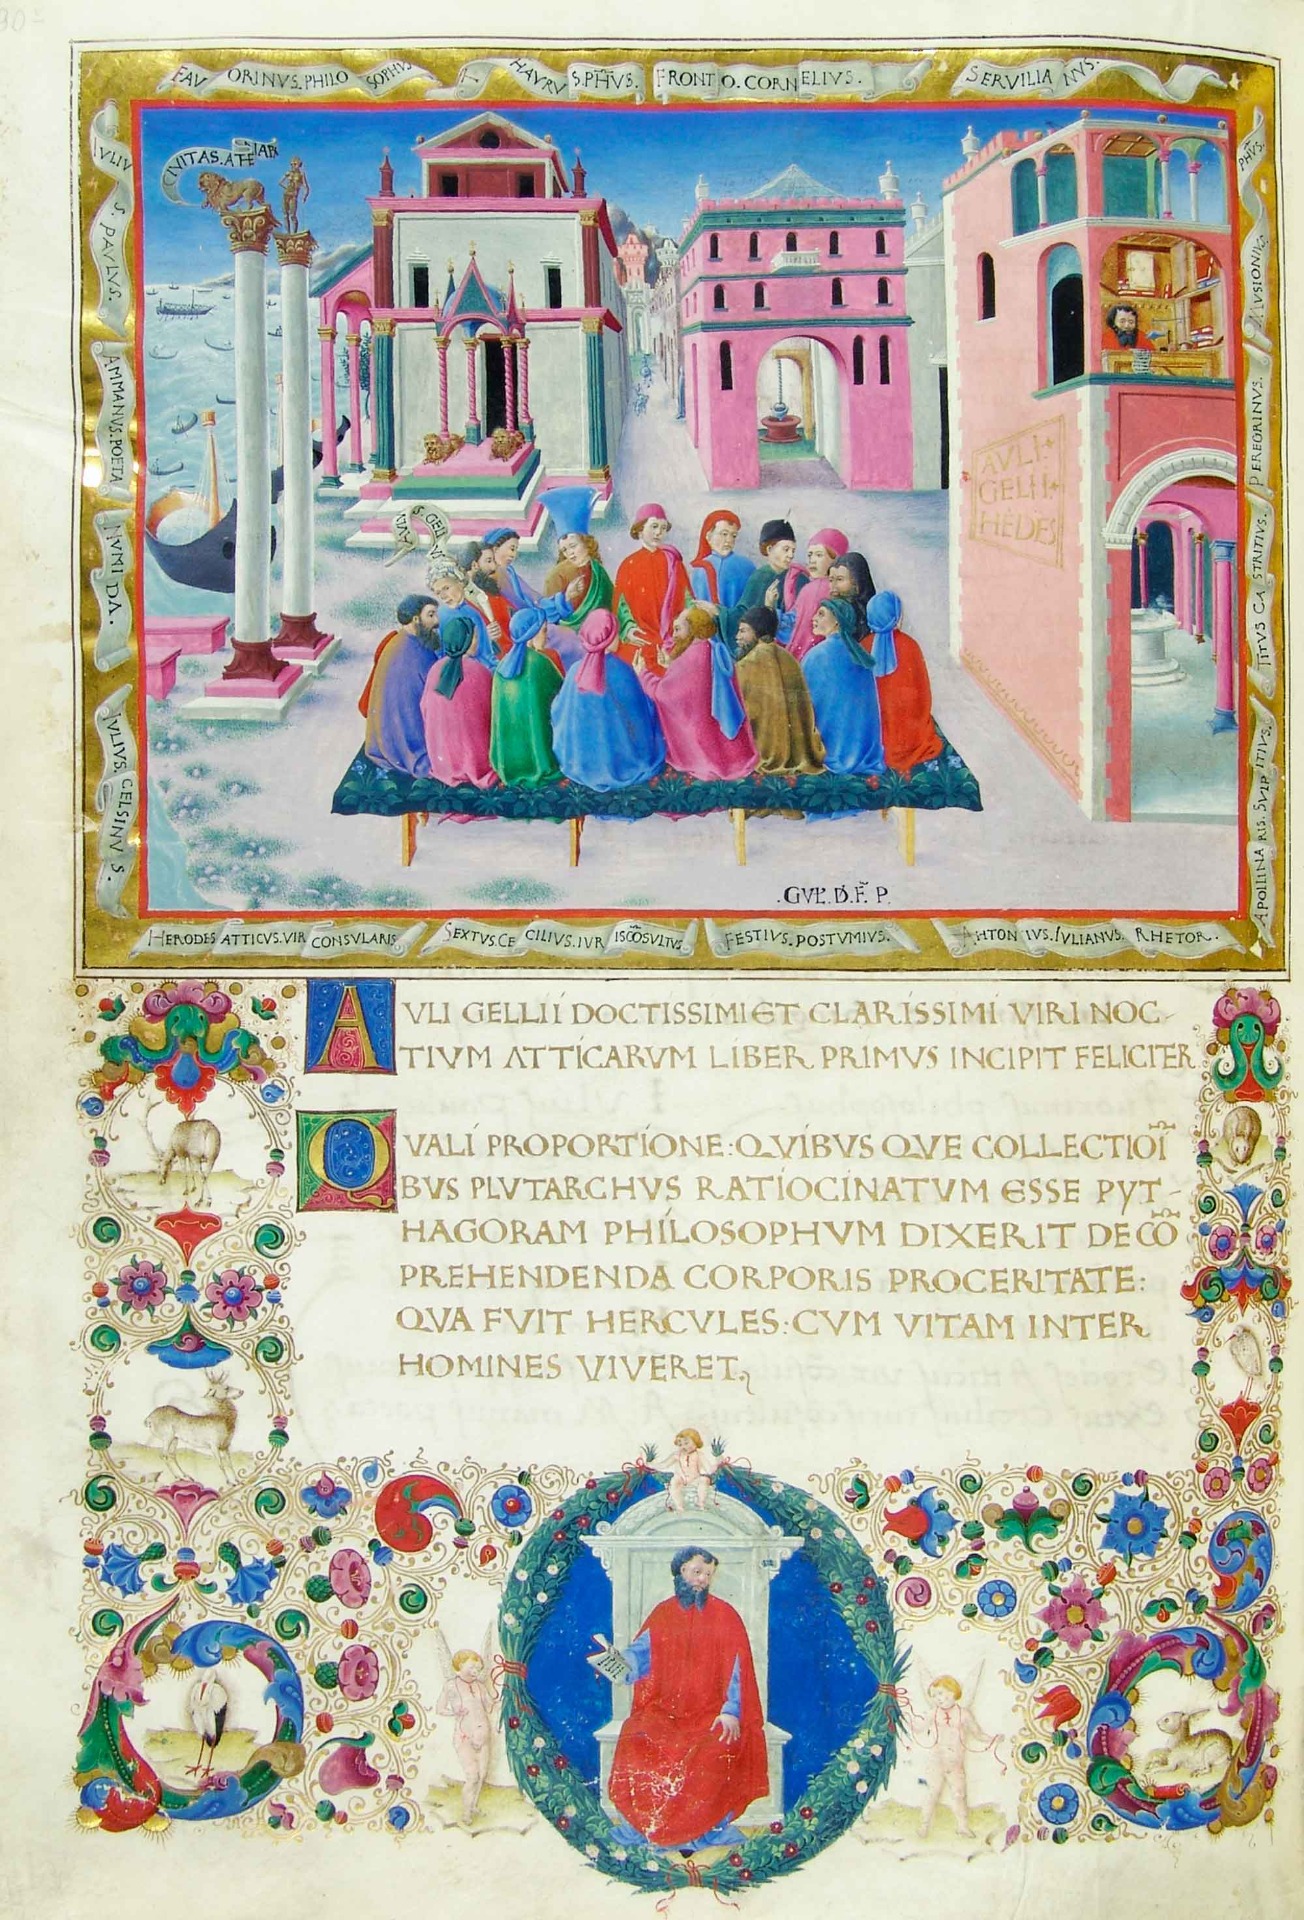 FAVORINVS. PHILOSOPHVS
THAVRVS. PHVS.
FRONTO. CORNELIVS.
SERVILIANVS.
IVLIVS. PAVLVS.
AMMANVS. POETA
NVMIDA.
IVLIVS. CELSINVS.
PHVS.
PEREGRINVS.
TITVS CASTRITIVS.
APOLLINARIS. SVLPITIVS.
CIVITAS. ATENIARV
AVLVS. GELLIVS
AVLI
GELII
HEDES
.GVL. D. F. P.
HERODES ATTICVS. VIR CONSVLARIS
SEXTVS. CECILIVS. IVRISCOSVLTVS
FESTIVS. POSTVMIVS.
ANTONIVS. IVLIANVS. RHETOR.
AVLI GELLII DOCTISSIMI ET CLARISSIMI VIRI NOC-
TIVM ATTICARVM LIBER PRIMVS INCIPIT FELICITER
QVALI PROPORTIONE: QVIBVS QVE COLLECTIOI
BVS PLVTARCHVS RATIOCINATVM ESSE PYT-
HAGORAM PHILOSOPHVM DIXERIT DE CO
PREHENDENDA CORPORIS PROCERITATE:
QVA FVIT HERCVLES: CVM VITAM INTER
HOMINES VIVERET,